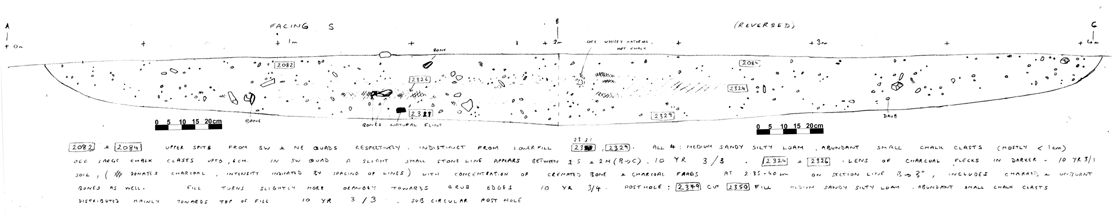 A
FACING S
B
(REVERSED)
C
0m
1m
2m
3m
4m
BONE
SOFT WHITISH MATERIAL, NOT CHALK
2082
2084
2326
2324
2329
BONE
BONES
NATURAL FLINT
DAUB
0 5 10 15 20cm
0 5 10 15 20cm
2082 & 2084 UPPER SPITS FROM SW & NE QUADS RESPECTIVELY. INDISTINCT FROM LOWER FILL 2329. ALL A: MEDIUM SANDY SILTY LOAM. ABUNDANT SMALL CHALK CLASTS (MOSTLY <1cm)
OCC LARGE CHALK CLASTS UPTO 6cm. IN SW QUAD A SLIGHT SMALL STONE LINE APPEARS BETWEEN 2.5 & 2M (B→C). 10 YR 3/3. 2324 & 2326: LENS OF CHARCOAL FLECKS IN DARKER - 10 YR 3/1
SOIL, ( DENOTES CHARCOAL. INTENSITY INDICATED BY SPACING OF LINES) WITH CONCENTRATION OF CREMATED BONE & CHARCOAL FRAGS AT 2.35-40m ON SECTION LINE INCLUDES CHARRED & UNBURNT
BONES AS WELL. FILL TURNS SLIGHTLY MORE ORANGEY TOWARDS GRUB EDGES 10 YR 3/4. POSTHOLE: CUT FILL MEDIUM SANDY SILTY LOAM. ABUNDANT SMALL CHALK CLASTS
DISTRIBUTED MAINLY TOWARDS TOP OF FILL 10 YR 3/3. SUB CIRCULAR POST HOLE